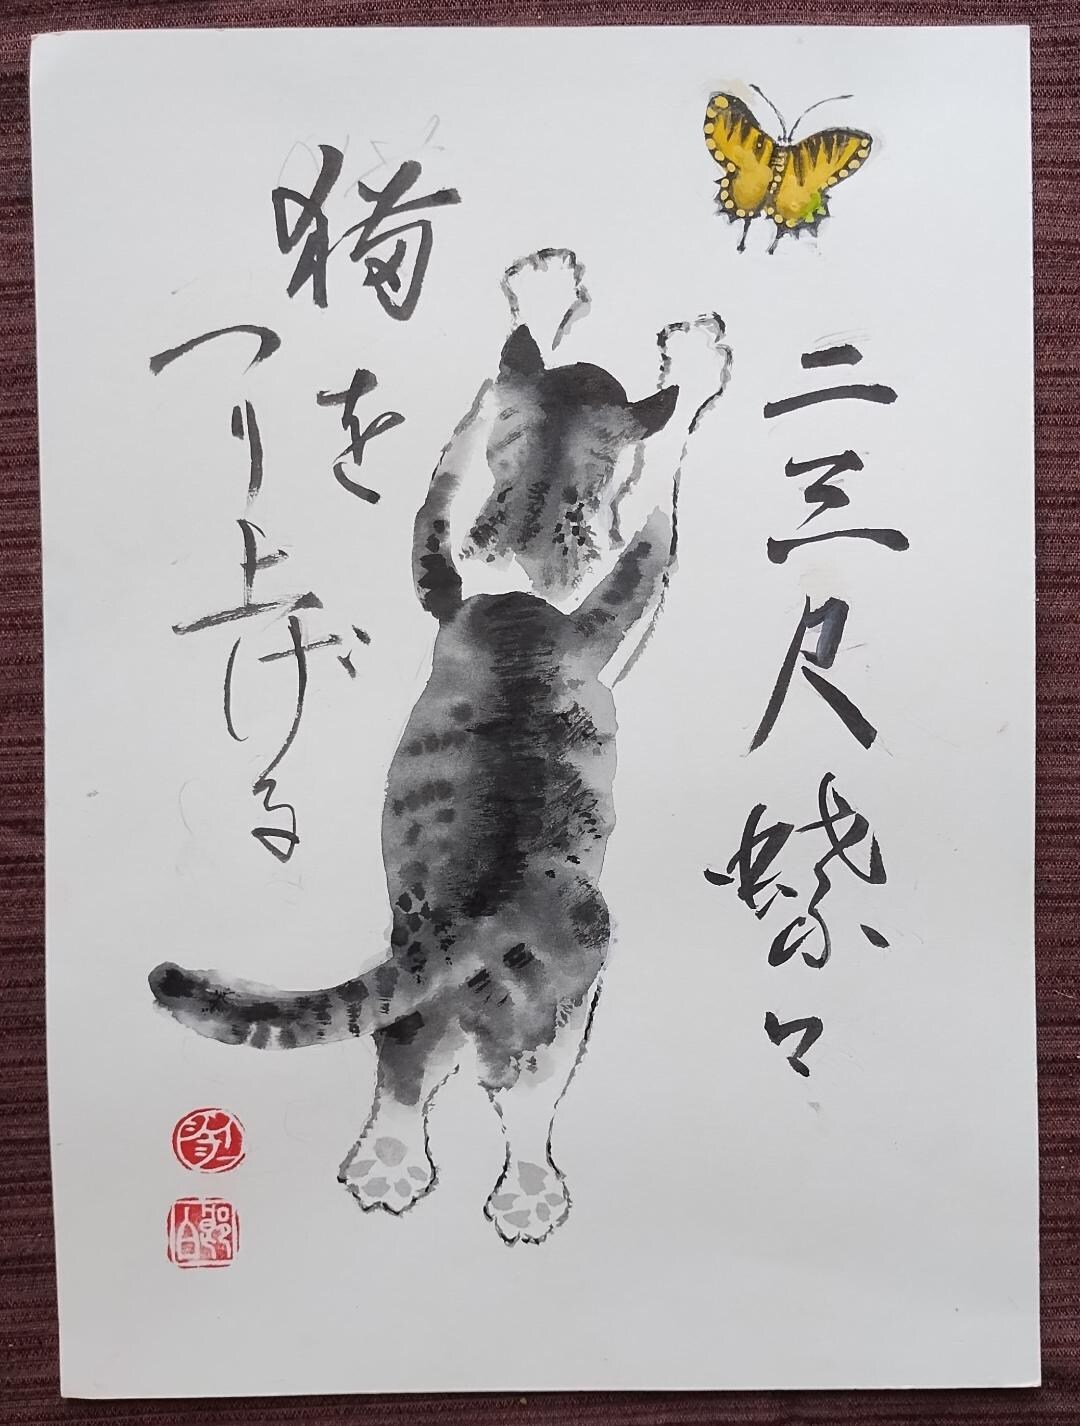 二三尺蝶々
猫を
つり上げる